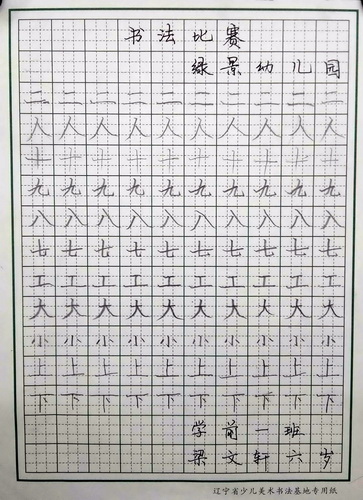 书法比赛
绿景幼儿园
二二二二二二二二二二
人人人人人人人人人人
十十十十十十十十十十
九九九九九九九九九九
八八八八八八八八八八
七七七七七七七七七七
工工工工工工工工工工
大大大大大大大大大大
小小小小小小小小小小
上上上上上上上上上上
下下下下下下下下下下
学前一班
梁文轩六岁
辽宁省少儿美术书法基地专用纸